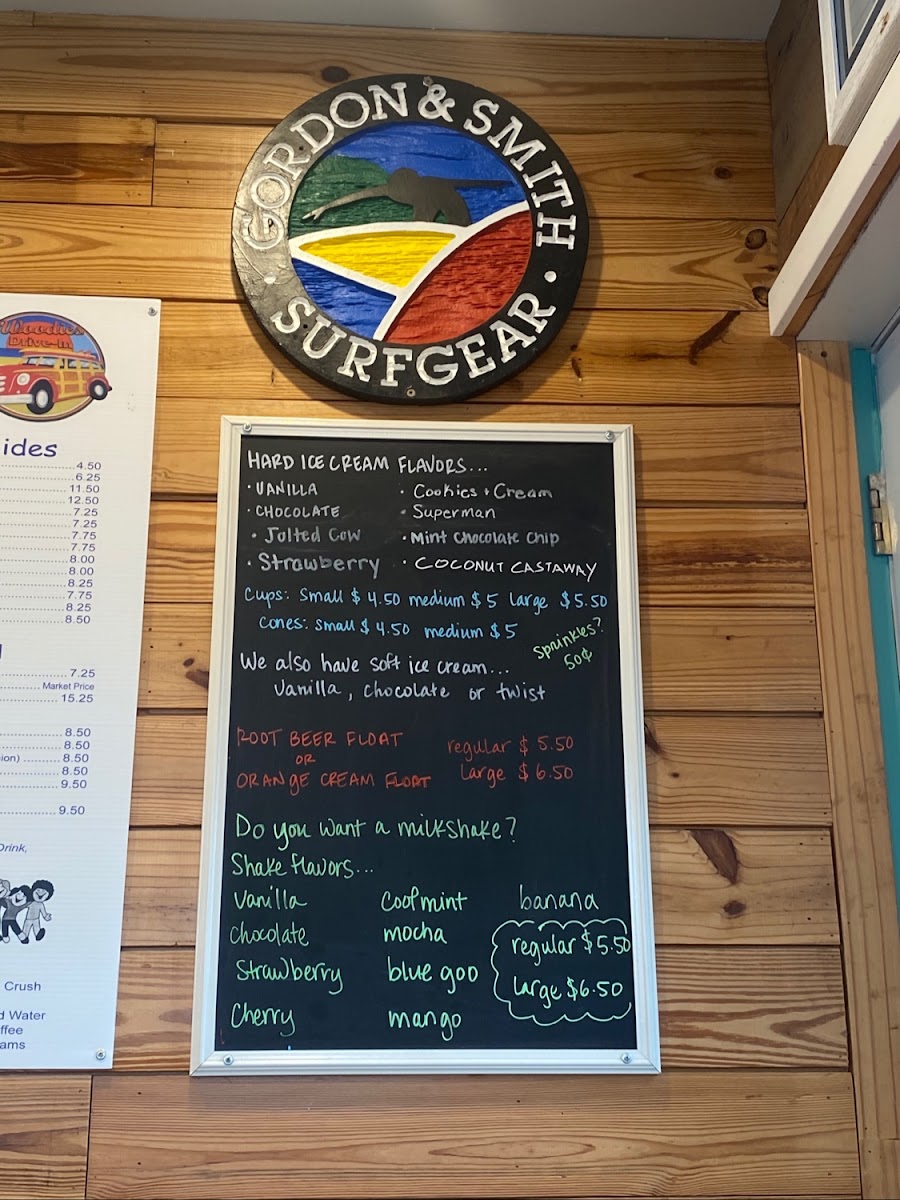 GORDON & SMITH
SURFGEAR
Woodies
Drive-in
ides
4.50
6.25
11.50
12.50
7.25
7.25
7.75
7.75
8.00
8.00
8.25
7.75
8.25
8.50
7.25
Market Price
15.25
8.50
8.50
ion) 8.50
8.50
9.50
9.50
Drink,
Crush
d Water
ffee
ams
HARD ICE CREAM FLAVORS...
• VANILLA • Cookies + Cream
• CHOCOLATE • Superman
• Jolted Cow • Mint Chocolate Chip
• Strawberry • COCONUT CASTAWAY
Cups: Small $4.50 medium $5 large $5.50
Cones: small $4.50 medium $5
Sprinkles?
50¢
We also have soft ice cream...
Vanilla, chocolate or twist
ROOT BEER FLOAT regular $5.50
OR
ORANGE CREAM FLOAT Large $6.50
Do you want a milkshake?
Shake flavors...
Vanilla Coolmint banana
Chocolate mocha regular $5.50
Strawberry blue goo Large $6.50
Cherry mango